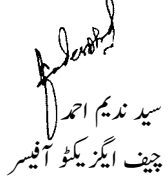 سید ندیم احمد
چیف ایگزیکٹو آفیسر